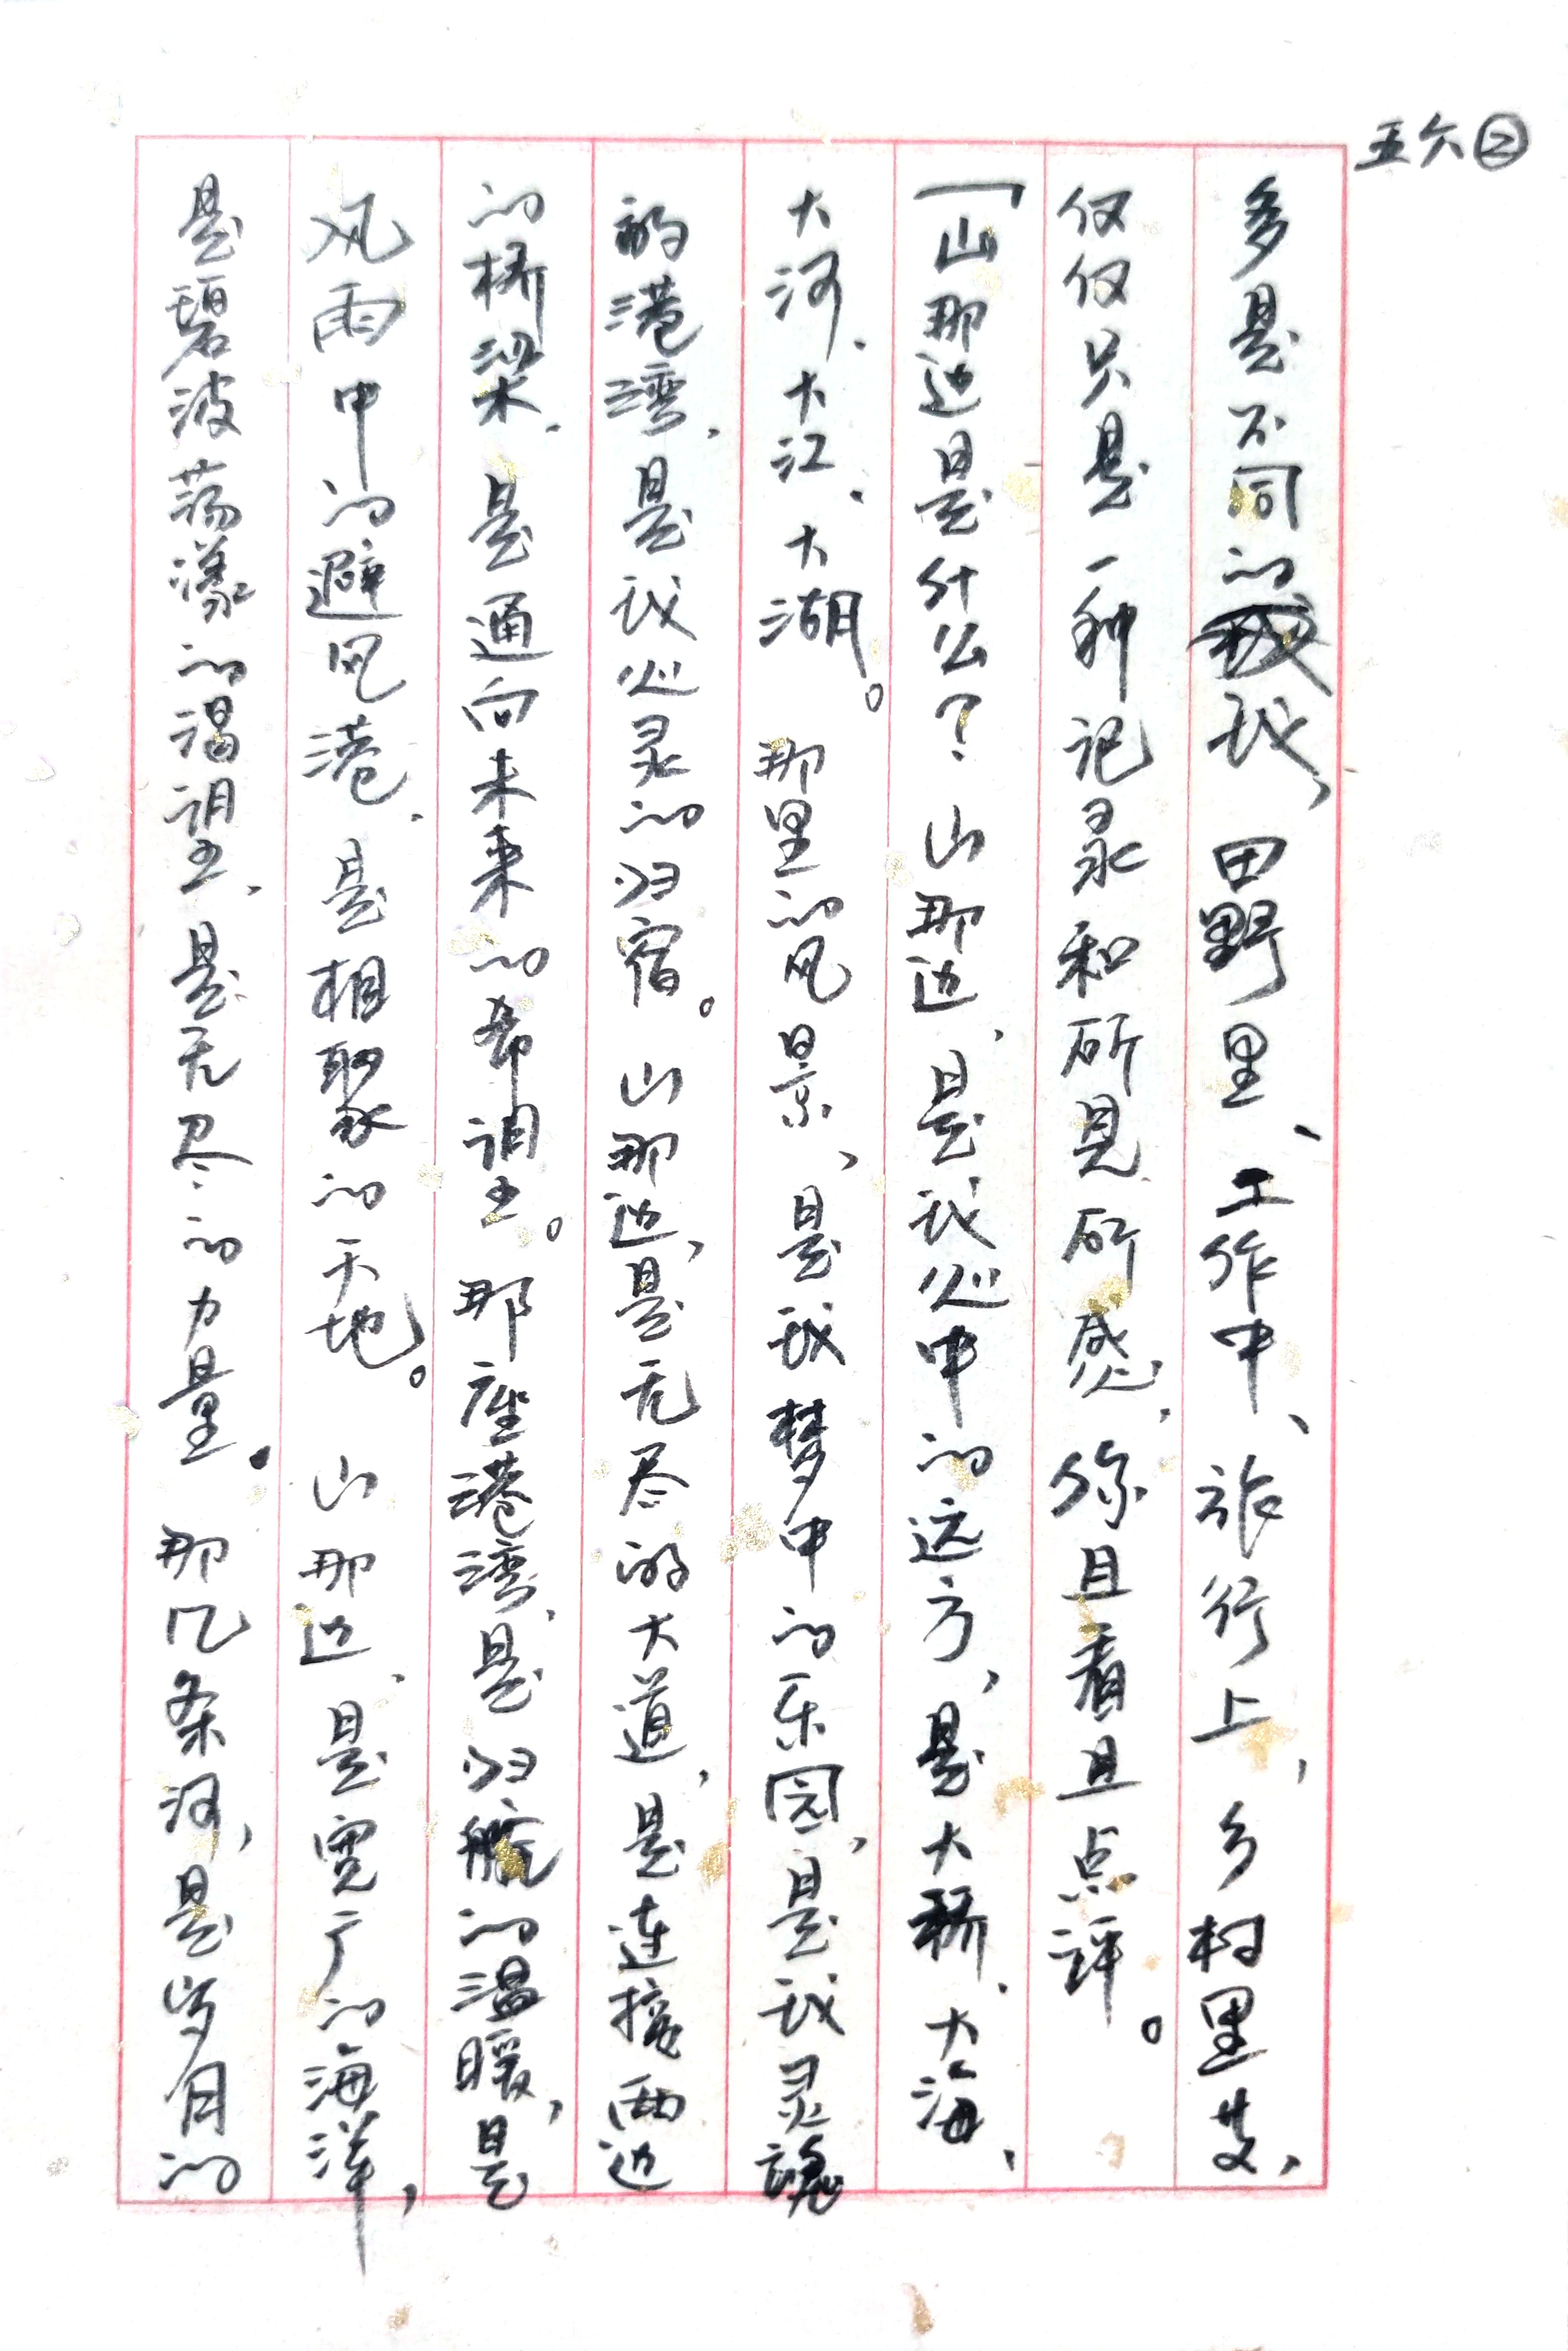 五六②
多是不同的我，田野里、工作中、旅行上，乡村里去，
仅仅只是一种记录和所见所感，你且看且点评。
「山那边是什么？山那边，是我心中的远方，是大桥、大海、
大河、大江、大湖。那里的风景，是我梦中的乐园，是我灵魂
的港湾，是我心灵的归宿。山那边，是无尽的大道，是连接两边
的桥梁，是通向未来的希望。那座港湾，是归航的温暖，是
风雨中的避风港，是相聚的天地。山那边，是宽广的海洋，
是碧波荡漾的渴望，是无尽的力量。那几条河，是岁月的